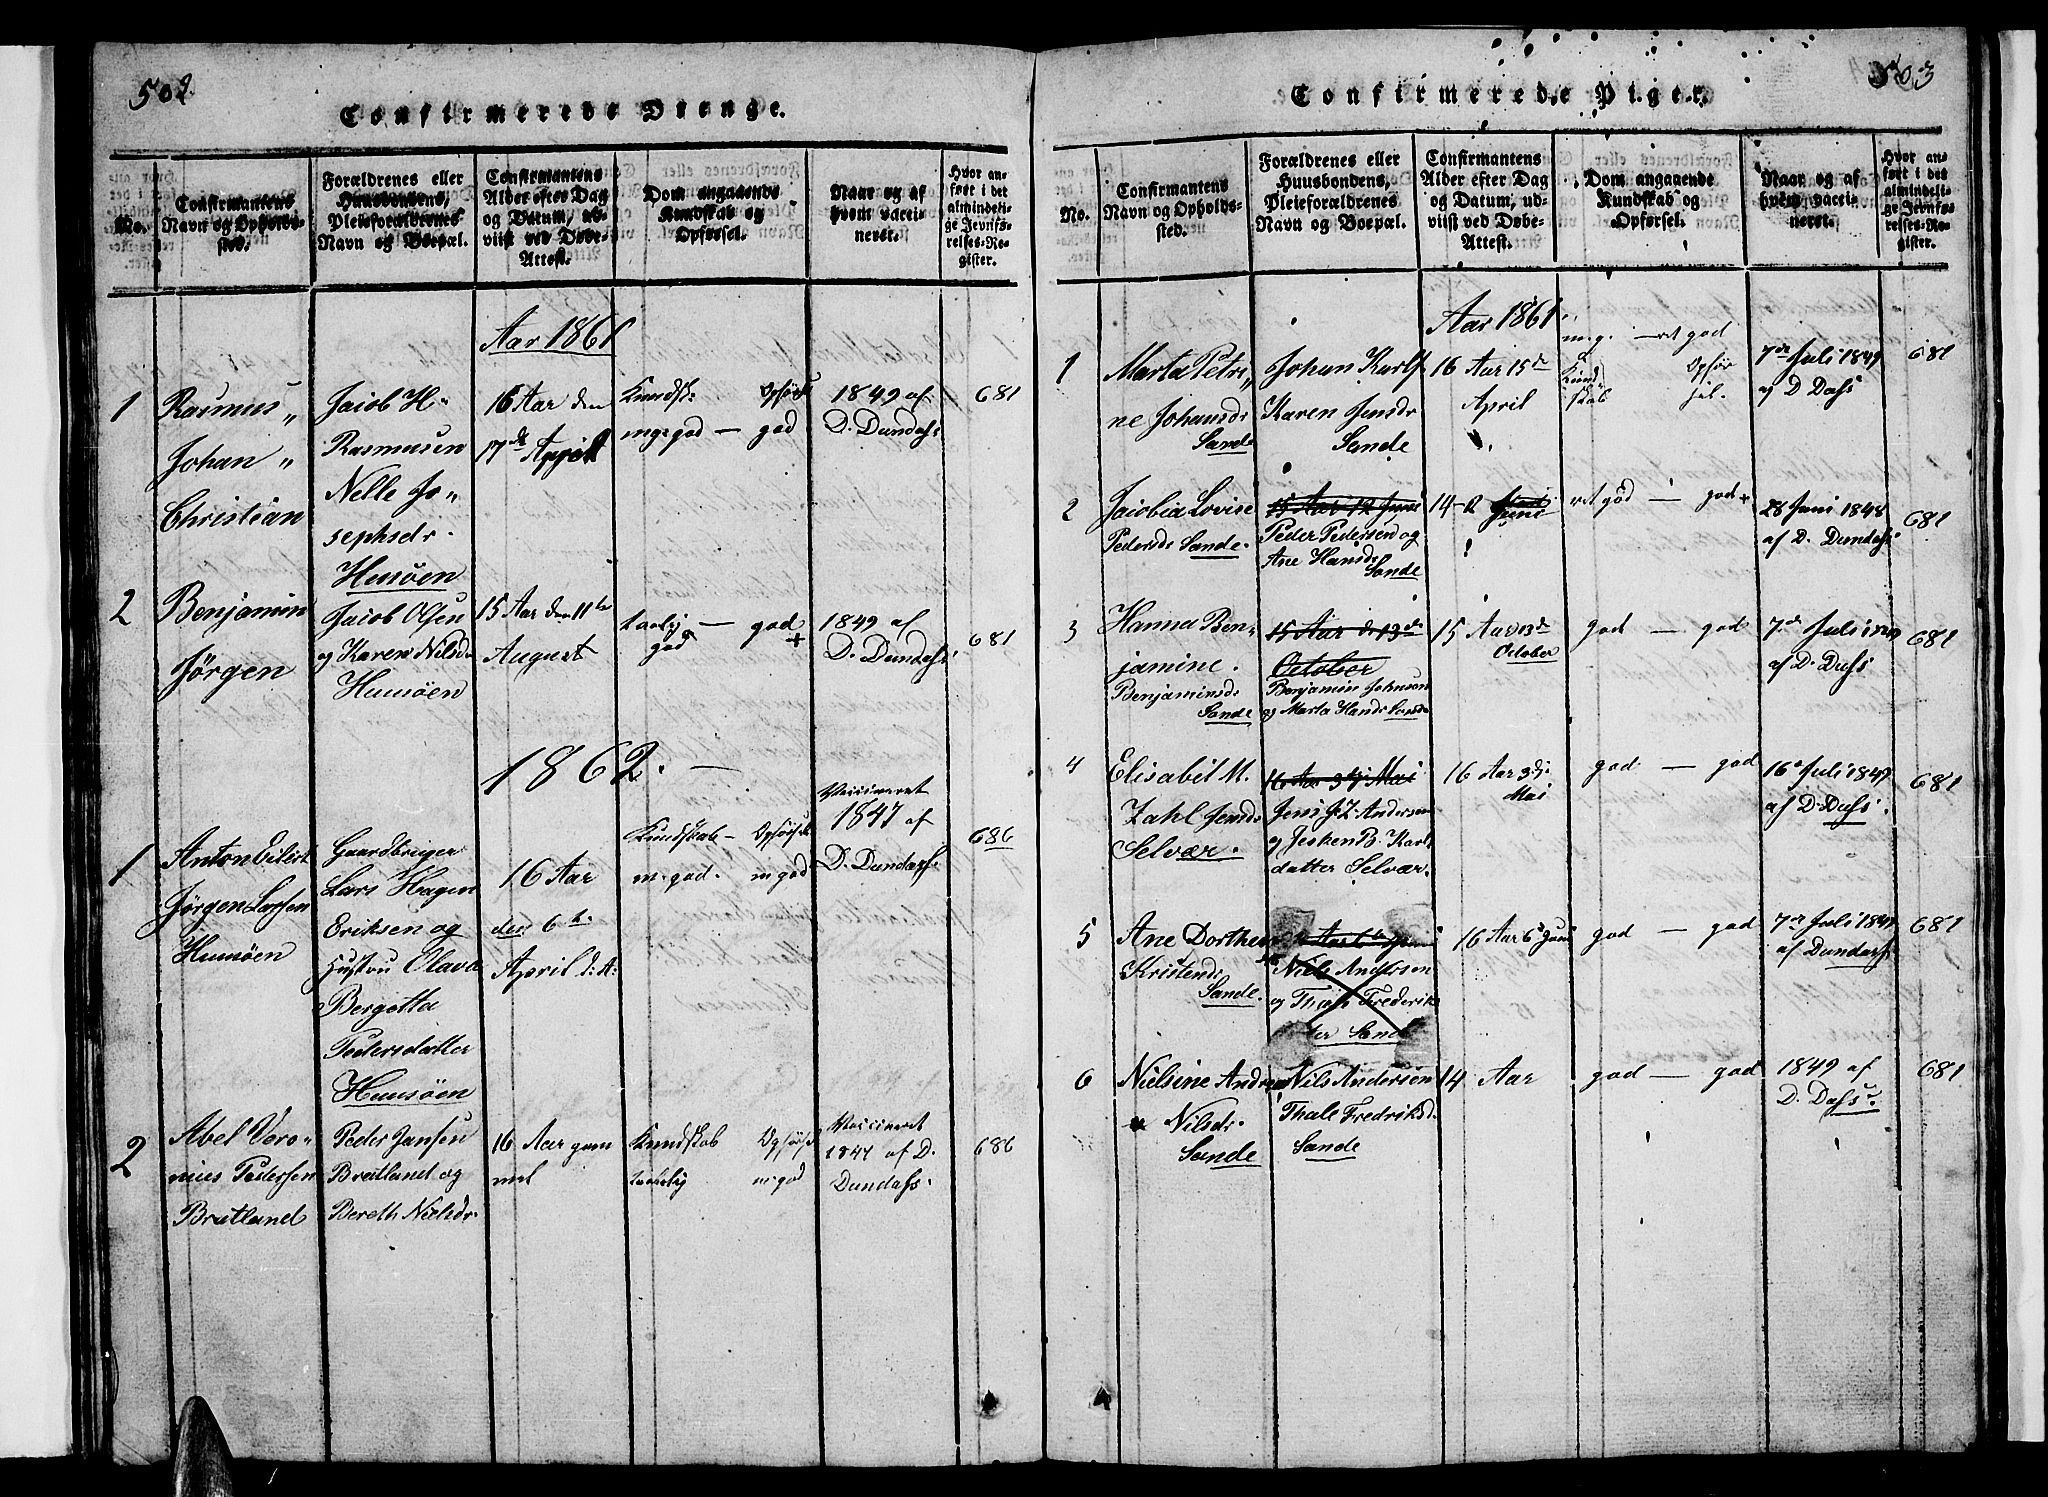 502.
Confirmerede Drenge.
No.
Confirmantens
Navn og Opholds-
sted.
Forældrenes eller
Huusbondens,
Pleieforældrenes
Navn og Boepæl.
Confirmantens
Alder efter Dag
og Datum, ud-
viist ved Døbe-
Attest.
Dom angaaende
Kundskab og
Opførsel.
Naar og af
hvem vacci-
neret.
Hvor an-
ført i det
almindeli-
ge Jevnfø-
relses-Re-
gister.
Aar 1861
1
Rasmus „
Johan „
Christian
Jacob H.
Rasmusen
Nelle Jo„
sephsdr.
Husøen
16 Aar den
17de April
Kundsk: Opførs
mg. god — god
1849 af
D. Dundass
681
2
Benjamin
Jørgen
Jacob Olsen
og Karen Nilsd.
Husøen
15 Aar den 11te
August
taalig — god
god +
1849 af
D. Dundass
681
1862. —
1
Anton Eilert
Jørgen Larsen
Husøen
Gaardbruger
Lars Hagen
Eriksen og
Hustru Olava
Bergetta
Pedersdatter
Huusøen
16 Aar
den 6te
April d: A:
Kundskab — Opførsel
m. god. m god
Vaccineret
1847 af
D. Dundass
686
2
Abel Vero-
nius Pedersen
Bratland
Peder Jansen
Bratland og
Bereth Nielsdr.
16 Aar gam
mel
Kundskab Opførsel
m. god
Vaccineret
1847 af D.
Dundass.
686
503
Confirmerede Piger.
No.
Confirmantens
Navn og Opholds-
sted.
Forældrenes eller
Huusbondens,
Pleieforældrenes
Navn og Boepæl.
Confirmantens
Alder efter Dag
og Datum, ud-
viist ved Døbe-
Attest.
Dom angaaende
Kundskab og
Opførsel.
Naar og af
hvem vacci-
neret.
Hvor an-
ført i det
almindeli-
ge Jevnfø-
relses-Re-
gister.
Aar 1861
1
Marta Petri„
ne Johansdr
Sande
Johan Karls
Karen Jensdr
Sande
16 Aar 15de
April
m.g. — ret god
Kund Opfør
skab sel.
7de Juli 1849
af D Dass
681
2
Jacobia Lovise
Pedersdr Sande.
15 Aar 12 Juni
Peder Pedersen og
Ane Hansdr
Sande
14 — 2 Juni
ret god — god +
28 Juni 1848
af D. Dundass
681
3
Hanna Ben„
jamine.
Benjaminsdr
Sande
15 Aar d: 13de
October
Benjamin Johnsen
og Marta Hansdr Sande
15 Aar 13de
October
god — god
7de Juli 1849
af D. Dass
681
4
Elisabet M.
Zahl Jensdr
Selvær.
16 Aar 3dj Mai
Jens J Z. Andersen
og Jesken B. Karl
datter Selvær.
16 Aar 3dj
Mai
god — god
16de Juli 1849
af D. Dass.
681
5
Ane Dorthea
Kristensdr
Sande.
Aar 6te Juni
Niels Andersen
og Thale Frederiks
ter Sande
16 Aar 6te Juni
god — god
7de Juli 1849
af Dundass
681
6
Nielsine Andrea
Nilsdr.
Sande
Nils Andersen
Thale Fredriksdr
Sande
14 Aar
god — god
1849 af
D. Dass.
681